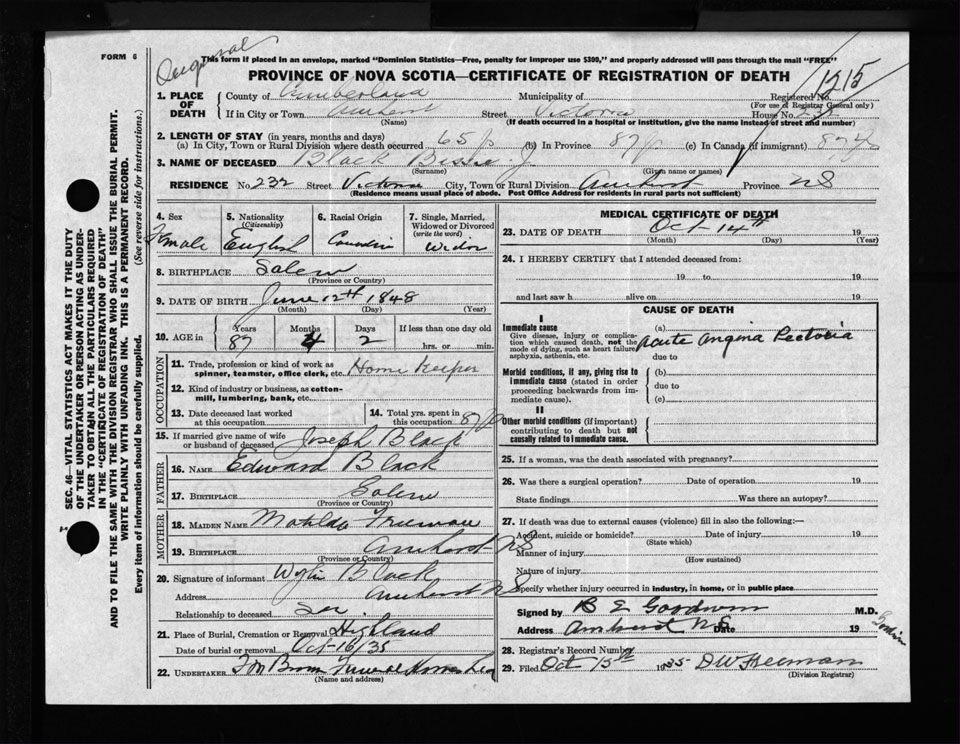 FORM 6
Original
This form if placed in an envelope, marked "Dominion Statistics—Free, penalty for improper use $300," and properly addressed will pass through the mail "FREE"
PROVINCE OF NOVA SCOTIA—CERTIFICATE OF REGISTRATION OF DEATH
1215
1. PLACE OF DEATH
County of Cumberland Municipality of Registered No.
(For use of Registrar General only)
If in City or Town Amherst Street Victoria House No. 232
(Name) (If death occurred in a hospital or institution, give the name instead of street and number)
2. LENGTH OF STAY (in years, months and days)
(a) In City, Town or Rural Division where death occurred 65 (b) In Province 87 (c) In Canada (if immigrant) 87
3. NAME OF DECEASED Black J.
(Surname) (Given name or names)
RESIDENCE No. 232 Street Victoria City, Town or Rural Division Amherst Province NS
(Residence means usual place of abode. Post Office Address for residents in rural parts not sufficient)
4. Sex Female
5. Nationality (Citizenship) English
6. Racial Origin Canadian
7. Single, Married, Widowed or Divorced (write the word) Widow
8. BIRTHPLACE Salem
(Province or Country)
9. DATE OF BIRTH June 12th 1848
(Month) (Day) (Year)
10. AGE in Years 87 Months 4 Days 2 If less than one day old hrs. or min.
OCCUPATION
11. Trade, profession or kind of work as spinner, teamster, office clerk, etc. Home Keeper
12. Kind of industry or business, as cotton-mill, lumbering, bank, etc.
13. Date deceased last worked at this occupation
14. Total yrs. spent in this occupation 87
15. If married give name of wife or husband of deceased Joseph Black
FATHER
16. NAME Edward Black
17. BIRTHPLACE Salem
(Province or Country)
MOTHER
18. MAIDEN NAME Matilda Freeman
19. BIRTHPLACE Amherst NS
(Province or Country)
20. Signature of informant Black
Address Amherst NS
Relationship to deceased
21. Place of Burial, Cremation or Removal Highland
Date of burial or removal Oct-16/35
22. UNDERTAKER Funeral Home
(Name and address)
MEDICAL CERTIFICATE OF DEATH
23. DATE OF DEATH Oct-14th 19
(Month) (Day) (Year)
24. I HEREBY CERTIFY that I attended deceased from:
19 to 19
and last saw h alive on 19
CAUSE OF DEATH
I
Immediate cause
Give disease, injury or complication which caused death, not the mode of dying, such as heart failure, asphyxia, asthenia, etc.
(a) Acute Angina Pectoris
due to
Morbid conditions, if any, giving rise to immediate cause (stated in order proceeding backwards from immediate cause).
(b)
due to
(c)
II
Other morbid conditions (if important) contributing to death but not causally related to immediate cause.
25. If a woman, was the death associated with pregnancy?
26. Was there a surgical operation? Date of operation 19
State findings Was there an autopsy?
27. If death was due to external causes (violence) fill in also the following:—
Accident, suicide or homicide? Date of injury 19
(State which)
Manner of injury
(How sustained)
Nature of injury
Specify whether injury occurred in industry, in home, or in public place
Signed by B E Goodwin M.D.
Address Amherst NS Date 19
28. Registrar's Record Number
29. Filed Oct 15th 1935 DW Freeman
(Division Registrar)
SEC. 46—VITAL STATISTICS ACT MAKES IT THE DUTY
OF THE UNDERTAKER OR PERSON ACTING AS UNDER-
TAKER TO OBTAIN ALL THE PARTICULARS REQUIRED
IN THE "CERTIFICATE OF REGISTRATION OF DEATH"
AND TO FILE THE SAME WITH THE DIVISION REGISTRAR WHO SHALL ISSUE THE BURIAL PERMIT.
WRITE PLAINLY WITH UNFADING INK. THIS IS A PERMANENT RECORD.
Every item of information should be carefully supplied. (See reverse side for instructions.)